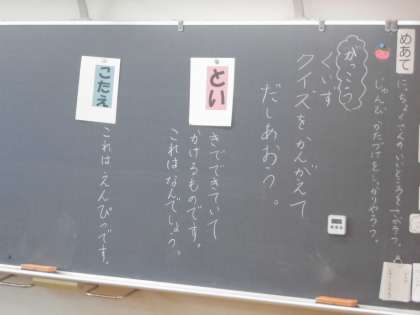 めあて
がっこう
くいず
クイズをかんがえて
だしあおう。
とい
きでできていて
かけるものです。
これはなんでしょう。
こたえ
これはえんぴつです。